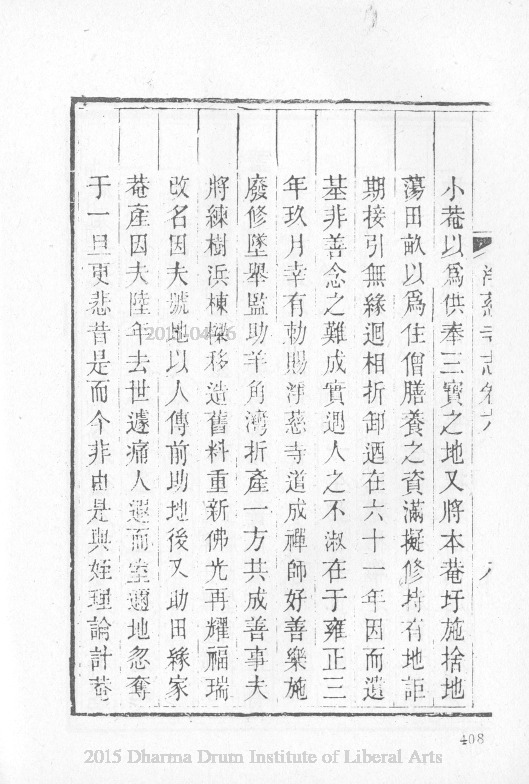 小菴以爲供奉三寶之地又將本菴圩施捨地
蕩田畝以爲住僧膳養之資滿擬修持有地詎
期接引無緣迴相折卸迺在六十一年因而遺
基非善念之難成實遇人之不淑在于雍正三
年玖月幸有勅賜淨慈寺道成禪師好善樂施
廢修墜舉監助羊角灣折產一方共成善事夫
將練樹浜棟樑移造舊料重新佛光再耀福瑞
改名因夫號地以人傳前助地後又助田緣家
菴產因夫陸年去世遽痛人遐而室邇地忽奪
于一旦更悲昔是而今非由是與姪理論計菴
淨慈寺志卷六
八
408
2015 Dharma Drum Institute of Liberal Arts